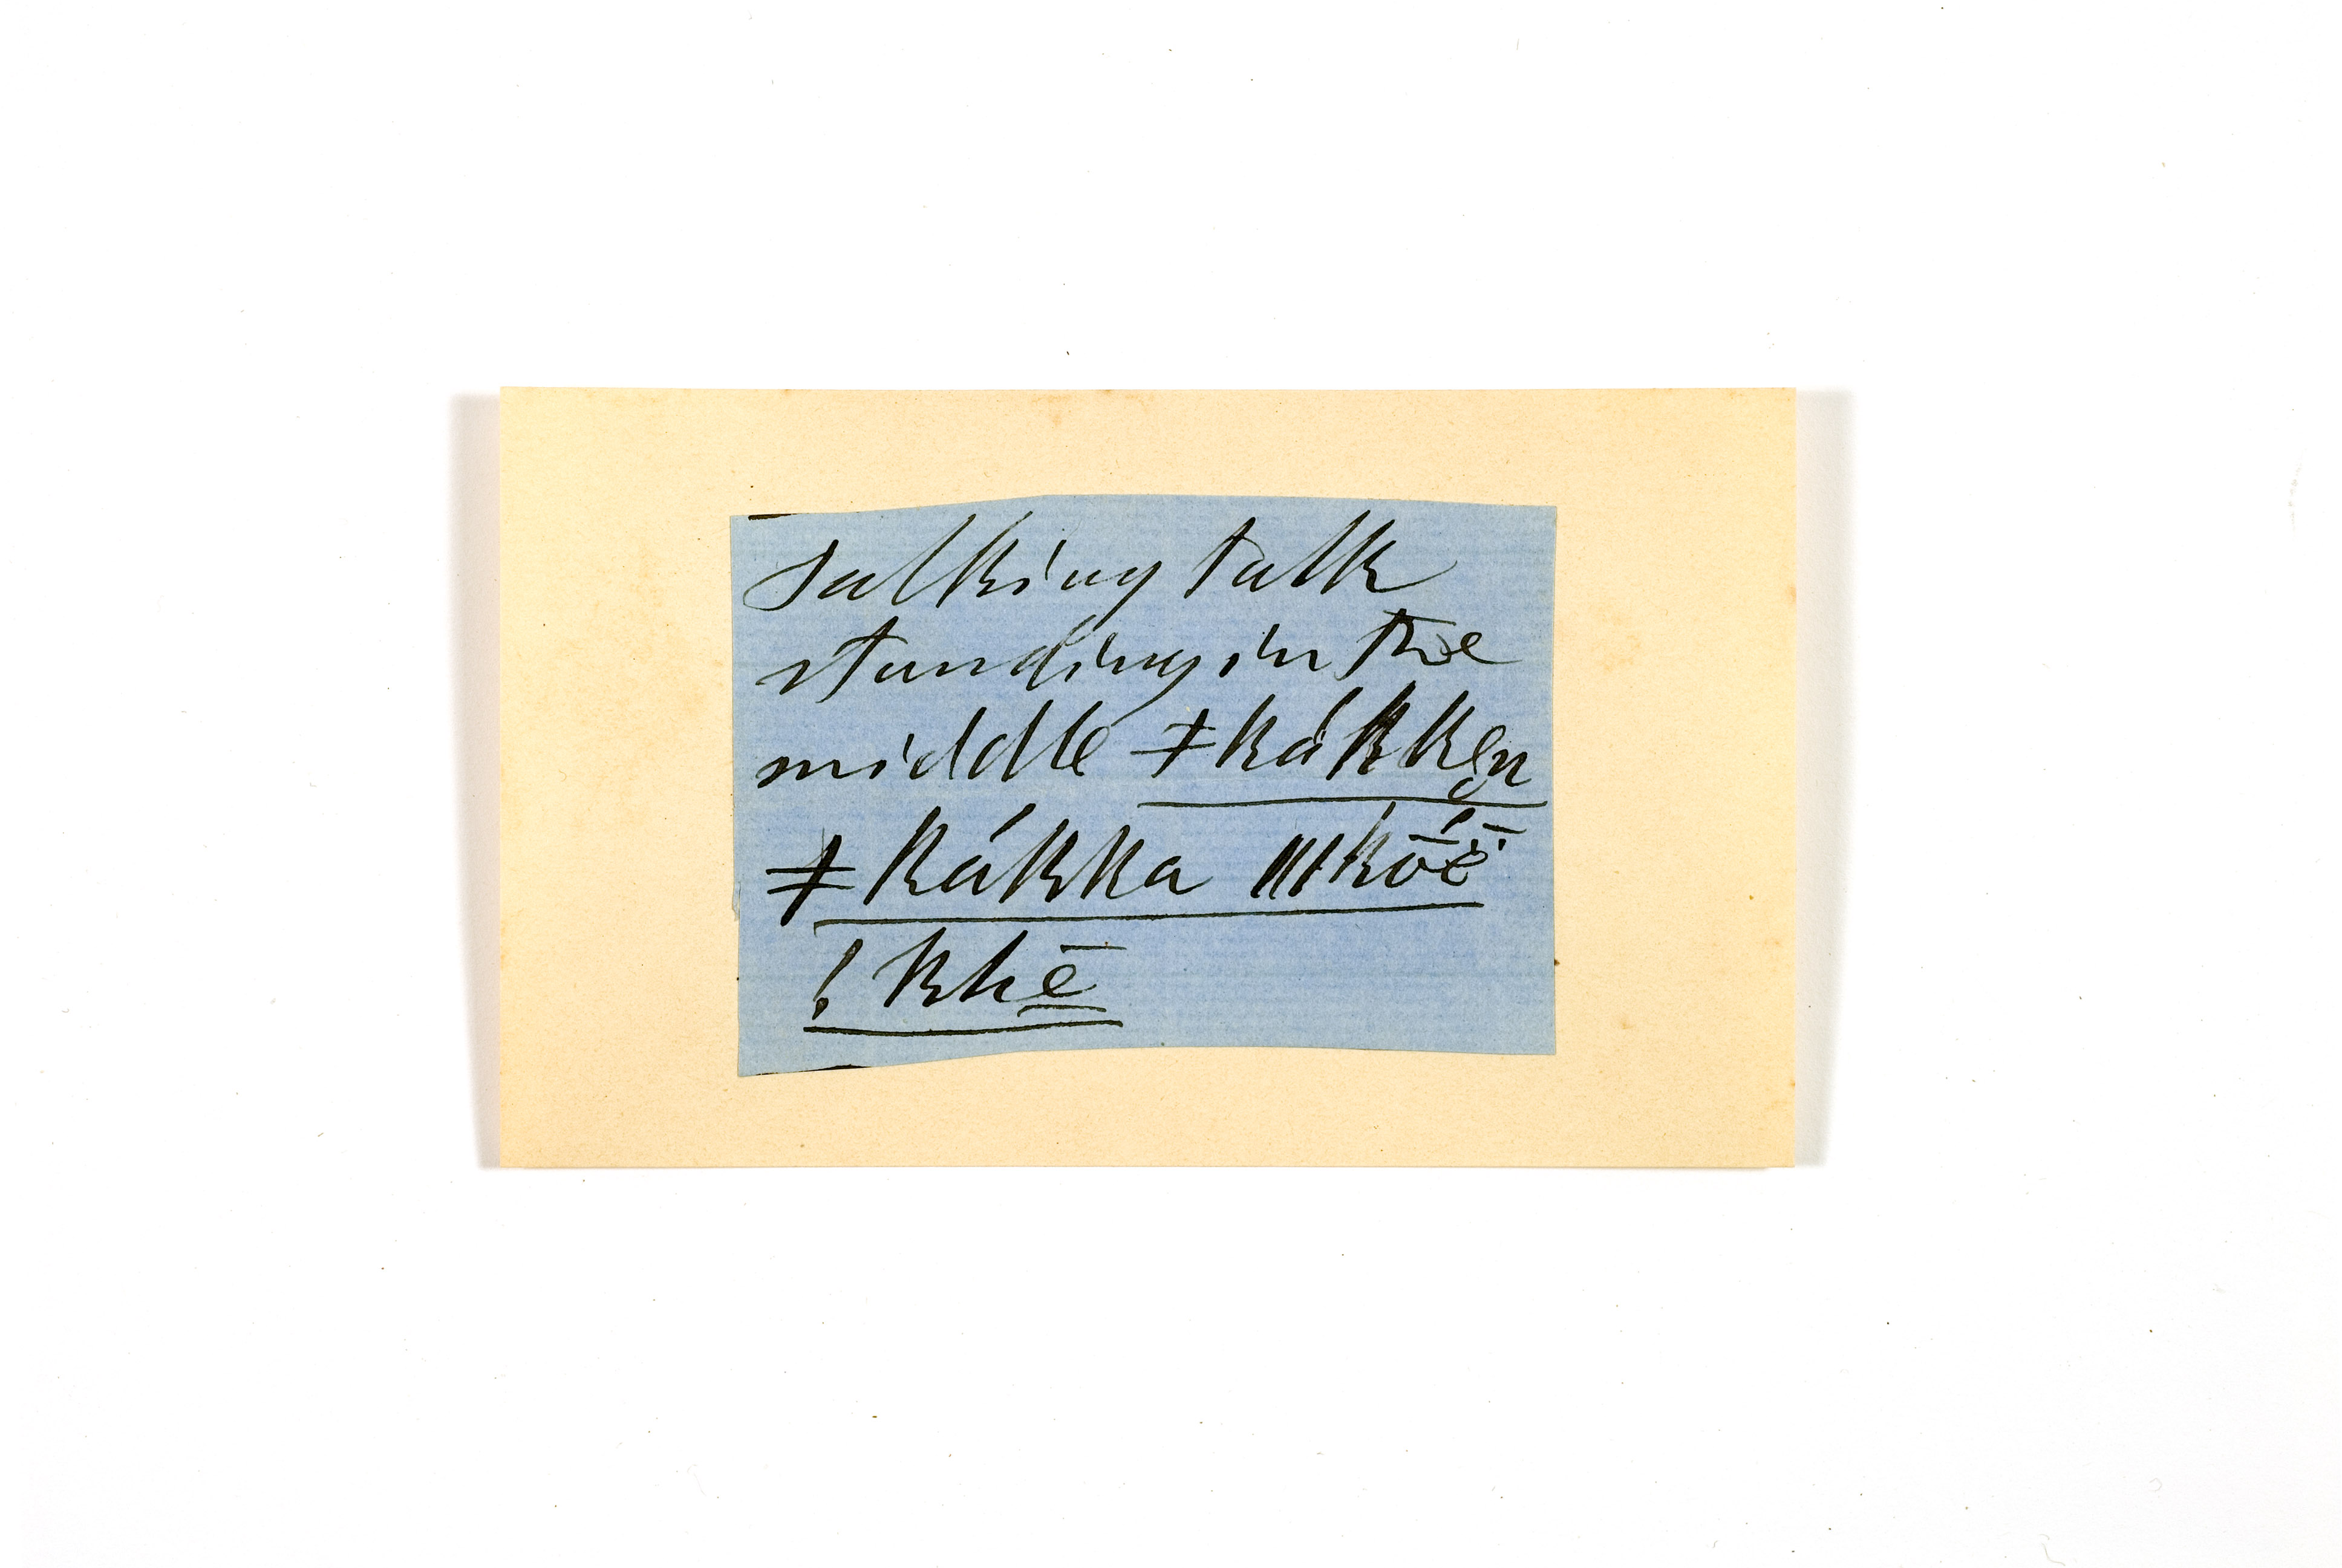 talking talk
standing in the
middle ǂkákken
ǂkákka |||kṓë̄
!khē̱